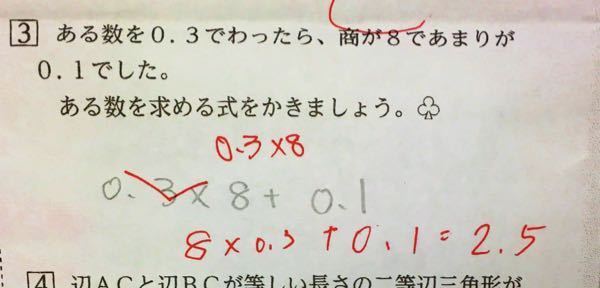 3 ある数を0.3でわったら、商が8であまりが
0.1でした。
ある数を求める式をかきましょう。♧
0.3×8
0.3×8+0.1
8×0.3+0.1=2.5
4 辺ACと辺BCが等しい長さの二等辺三角形が